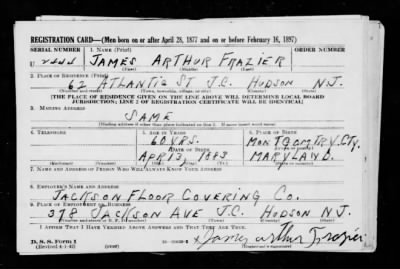 REGISTRATION CARD—(Men born on or after April 28, 1877 and on or before February 16, 1897)
SERIAL NUMBER 1. NAME (Print) ORDER NUMBER
U 2444 JAMES ARTHUR FRAZIER
(First) (Middle) (Last)
2. PLACE OF RESIDENCE (Print)
62 ATLANTIC ST J.C. HUDSON N.J.
(Number and street) (Town, township, village, or city) (County) (State)
[THE PLACE OF RESIDENCE GIVEN ON THE LINE ABOVE WILL DETERMINE LOCAL BOARD
JURISDICTION; LINE 2 OF REGISTRATION CERTIFICATE WILL BE IDENTICAL]
3. MAILING ADDRESS
SAME
[Mailing address if other than place indicated on line 2. If same insert word same]
4. TELEPHONE 5. AGE IN YEARS 6. PLACE OF BIRTH
60 YRS. MONTGOMTRY. CTY.
DATE OF BIRTH (Town or county)
APR 13 1883 MARYLAND.
(Exchange) (Number) (Mo.) (Day) (Yr.) (State or country)
7. NAME AND ADDRESS OF PERSON WHO WILL ALWAYS KNOW YOUR ADDRESS
8. EMPLOYER'S NAME AND ADDRESS
JACKSON FLOOR COVERING CO.
9. PLACE OF EMPLOYMENT OR BUSINESS
378 JACKSON AVE J.C. HUDSON N.J.
(Number and street or R. F. D. number) (Town) (County) (State)
I AFFIRM THAT I HAVE VERIFIED ABOVE ANSWERS AND THAT THEY ARE TRUE.
D. S. S. Form 1
(Revised 4-1-42) (over) x James Arthur Frazier
(Registrant's signature)